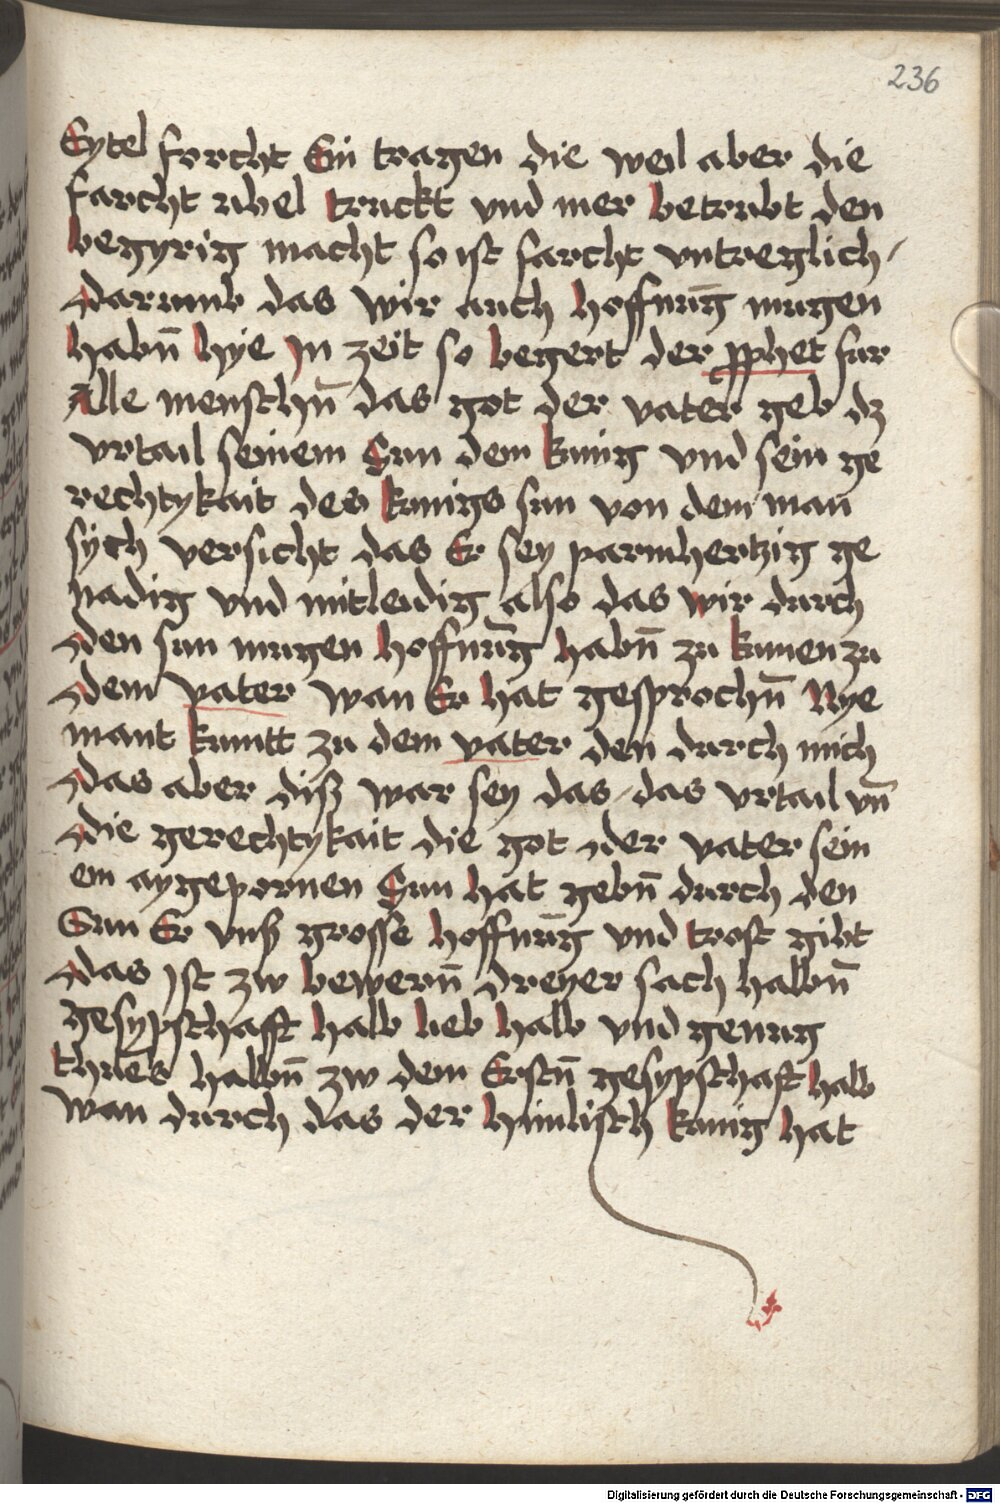 236
Eytel forcht Ein tragen die weil aber die
farcht ubel truckt vnd mer betrubt den
begyrig macht so ist farcht vntreglich
Darumb das wir auch hoffnūg mugen
habn̄ hye In zeit so begert der ꝓphet fur
Alle menschn̄ das got der vater geb dz
vrtail seinem Sun dem kunig vnd sein ge
rechtykait des kunigs sun von dem man
sych versicht das Er sey parmhertzig ge
nadig vnd mitleidig also das wir durch
den sun mugen hoffnūg habn̄ zu kumen zu
dem vater wan Er hat gesprochn̄ Nye
mant kumtt zu dem vater den durch mich
das aber disz war sey das das vrtail vn̄
die gerechtykait die got der vater sein
em aygepornen Sun hat gebn̄ durch den
Sun Er vnsz grosse hoffnūg vnd trost gibt
das Ist zw bewern̄ dreyer sach halbn̄
gesypschafft halb lieb halb vnd genug
thues halbn̄ zw dem Erstn̄ gesypschaft halb
wan durch das der himlisch kunig hat
Digitalisierung gefördert durch die Deutsche Forschungsgemeinschaft - DFG